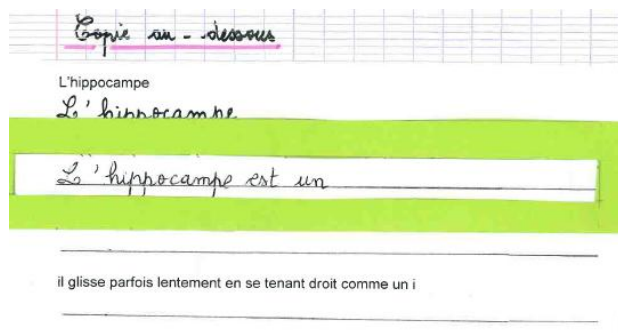 Copie au-dessous
L'hippocampe
L'hippocampe
L'hippocampe est un
il glisse parfois lentement en se tenant droit comme un i